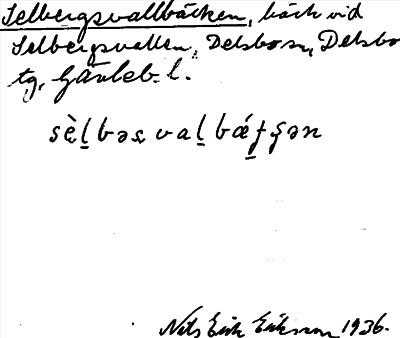 Selbergsvallbäcken, bäck vid
Selbergsvallen, Delsbo sn, Delsbo
tg, Gävleb. l.
sè̀l̲bəsval̲bǽƒʂən
Nils Erik Eriksson 1936.